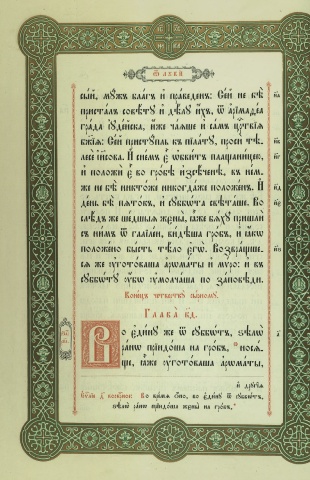 Ѿ ЛꙊКИ
сый, мꙋжъ благъ и праведенъ: Сей не бѣ
присталъ совѣтꙋ и дѣлꙋ ихъ, ѿ арімаѳеа
града іꙋдейска, иже чаѧше и самъ црⷭ҇твіѧ
бж҃іѧ: Сей пристꙋпль къ пілатꙋ, проси тѣ-
лесе іи҃сова. И снемъ є обвитъ плащаницею,
и положи є во гробѣ изсѣченѣ, въ нем-
же не бѣ никтоже никогдаже положенъ. И
день бѣ пѧтокъ, и сꙋббѡта свѣташе. Во
слѣдъ же шедшыѧ жены, ꙗже бѧхꙋ пришли
съ нимъ ѿ галілеи, видѣша гробъ, и ꙗкѡ
положено бысть тѣло єгѡ̀. Возвращше-
сѧ же оуготоваша арѡматы и мѵро: и въ
сꙋббѡтꙋ оубѡ оумолчаша по заповѣди.
Конецъ четвертꙋ зачалꙋ.
Глава к҃д.
Во єдинꙋ же ѿ сꙋббѡтъ, ѕѣлѡ
ранѡ пріидоша на гробъ, носѧ-
ще, ꙗже оуготоваша арѡматы,
и дрꙋгіѧ
Во времѧ ѻно, во єдинꙋ ѿ сꙋббѡтъ,
ѕѣлѡ ранѡ пріидоша жены на гробъ,